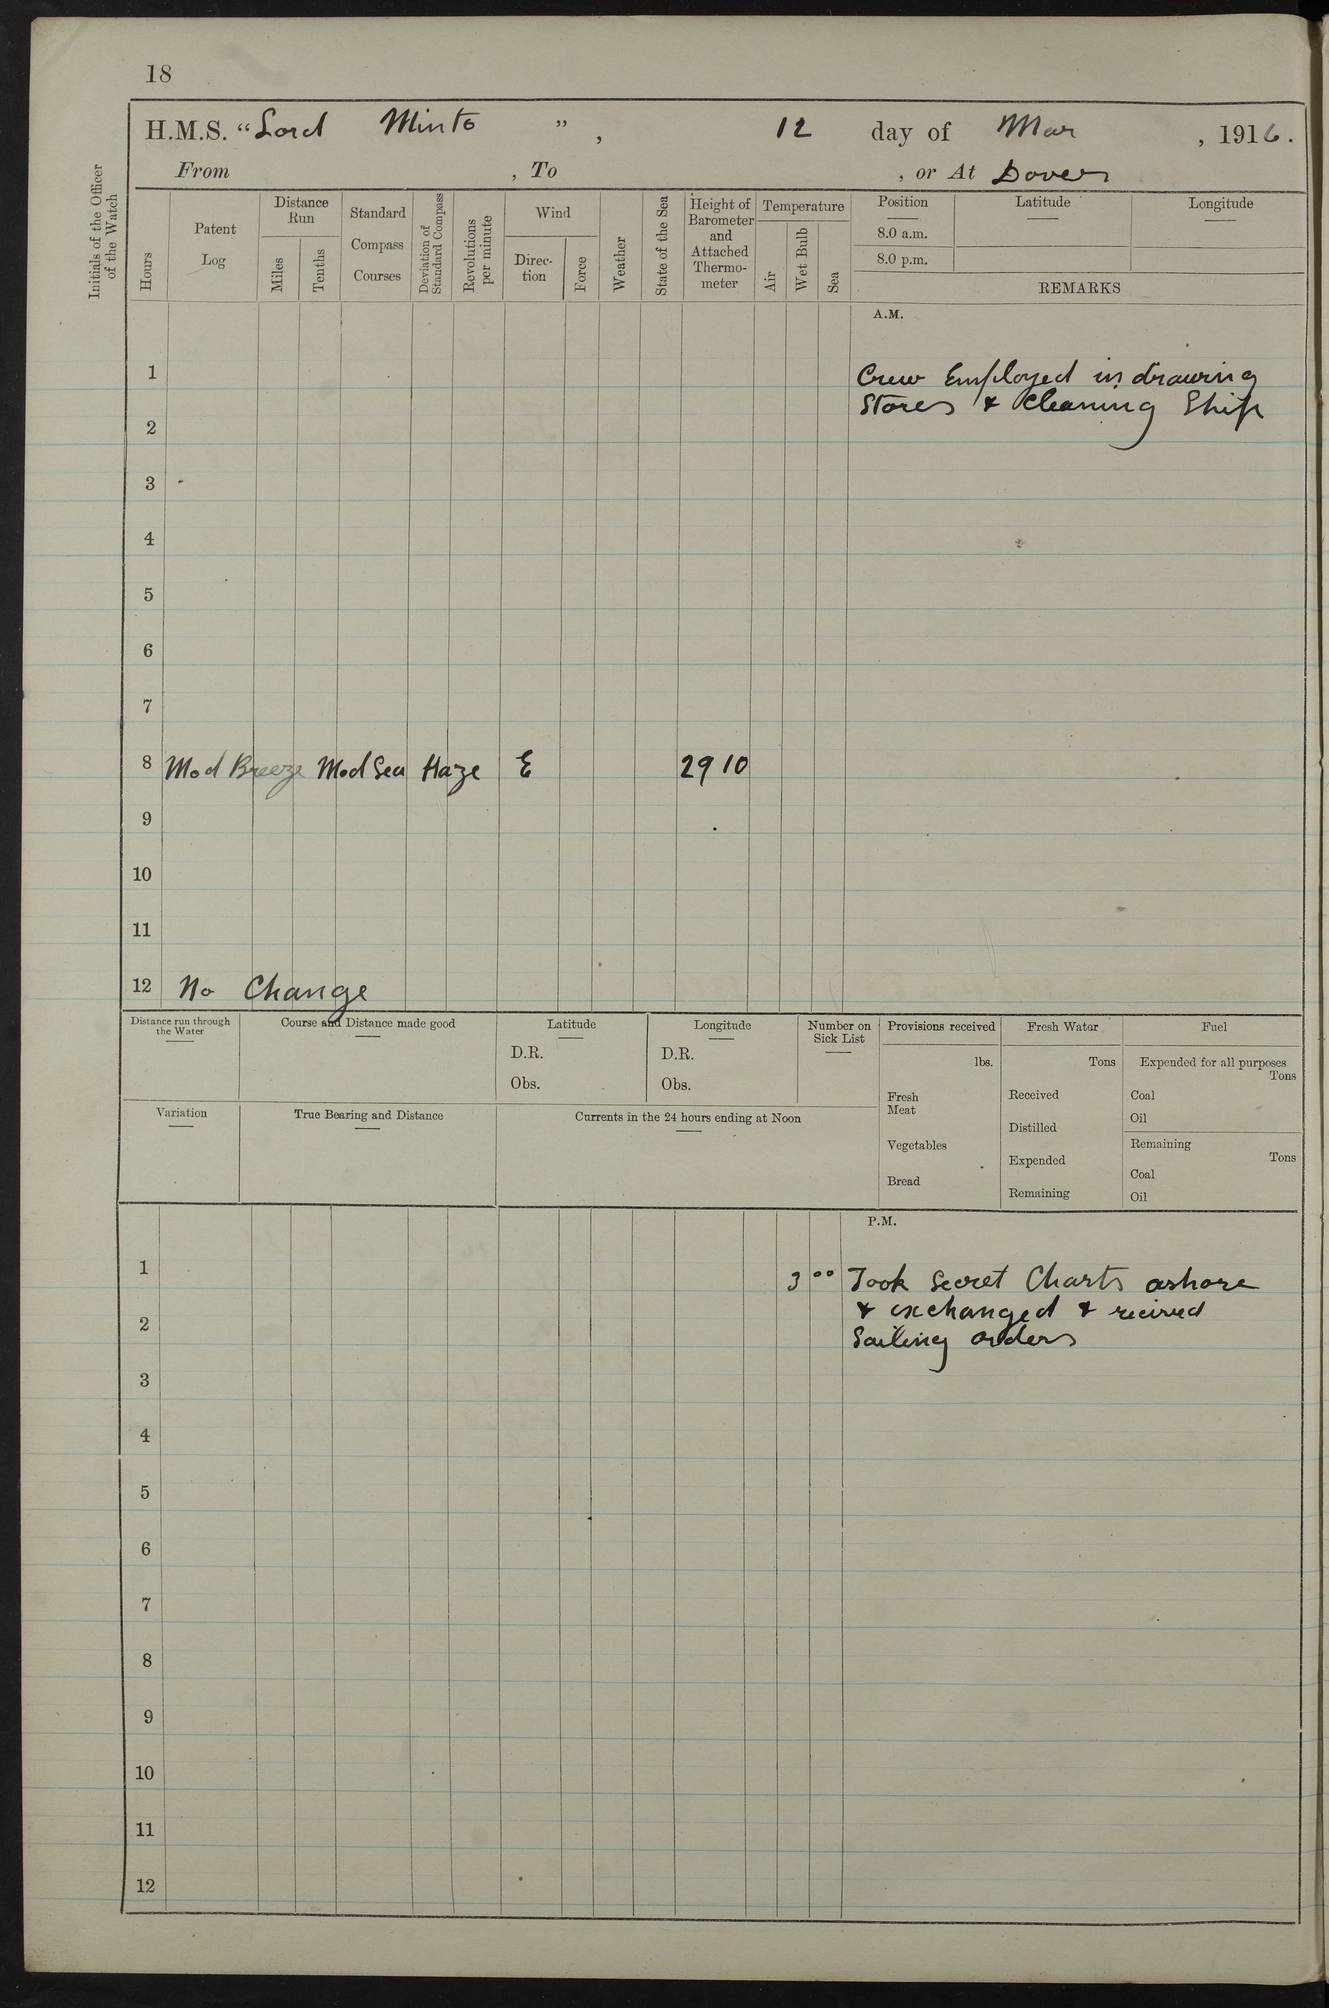 18
H.M.S. “Lord Minto ” , 12 day of Mar , 1916.
From , To , or At Dover
Initials of the Officer of the Watch
Hours
Patent Log
Distance Run
Miles
Tenths
Standard Compass Courses
Deviation of Standard Compass
Revolutions per minute
Wind
Direc- tion
Force
Weather
State of the Sea
Height of Barometer and Attached Thermo- meter
Temperature
Air
Wet Bulb
Sea
Position Latitude Longitude
8.0 a.m.
8.0 p.m.
REMARKS
A.M.
1 Crew Employed in drawing
Stores & Cleaning Ship
2
3
4
5
6
7
8 Mod Breeze Mod Sea Haze E 29 10
9
10
11
12 No Change
Distance run through the Water
Course and Distance made good
Latitude
D.R.
Obs.
Longitude
D.R.
Obs.
Number on Sick List
Provisions received
lbs.
Fresh Meat
Vegetables
Bread
Fresh Water
Tons
Received
Distilled
Expended
Remaining
Fuel
Expended for all purposes
Tons
Coal
Oil
Remaining
Tons
Coal
Oil
Variation
True Bearing and Distance
Currents in the 24 hours ending at Noon
P.M.
1 3 00 Took Secret Charts ashore
& exchanged & recived
2 Sailing orders
3
4
5
6
7
8
9
10
11
12